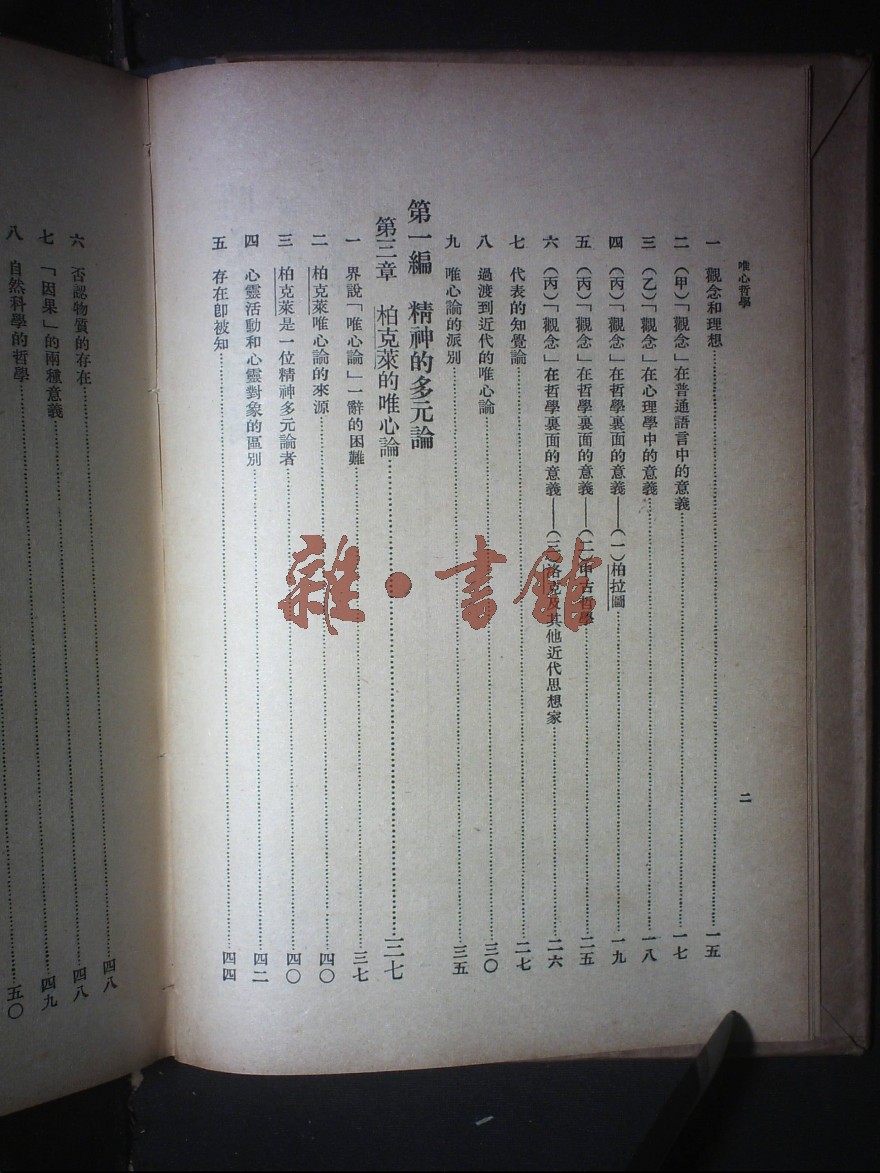 唯心哲學
二
一 觀念和理想……一五
二 （甲）「觀念」在普通語言中的意義……一七
三 （乙）「觀念」在心理學中的意義……一八
四 （丙）「觀念」在哲學裏面的意義——（一）柏拉圖……一九
五 （丙）「觀念」在哲學裏面的意義——（二）中古哲學……二五
六 （丙）「觀念」在哲學裏面的意義——（三）洛克及其他近代思想家……二六
七 代表的知覺論……二七
八 過渡到近代的唯心論……三〇
九 唯心論的派別……三五
第一編 精神的多元論
第三章 柏克萊的唯心論……三七
一 界說「唯心論」一辭的困難……三七
二 柏克萊唯心論的來源……四〇
三 柏克萊是一位精神多元論者……四〇
四 心靈活動和心靈對象的區別……四二
五 存在卽被知……四四
六 否認物質的存在……四八
七 「因果」的兩種意義……四八
八 自然科學的哲學……四九
五〇
雜·書館